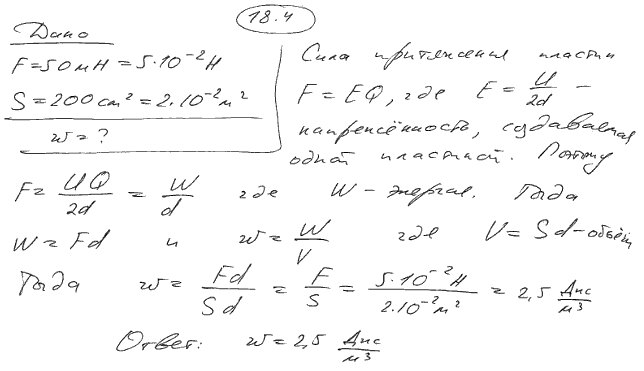 18.4
Дано
F = 50 мН = 5·10⁻² Н
S = 200 см² = 2·10⁻² м²
w = ?
Сила притяжения пластин
F = EQ, где E = U/2d –
напряжённость, создаваемая
одной пластиной. Поэтому
F = UQ/2d = W/d где W – энергия. Тогда
W = Fd и w = W/V где V = Sd – объём
Тогда w = Fd/Sd = F/S = 5·10⁻² Н/2·10⁻² м² = 2,5 Дж/м³
Ответ: w = 2,5 Дж/м³